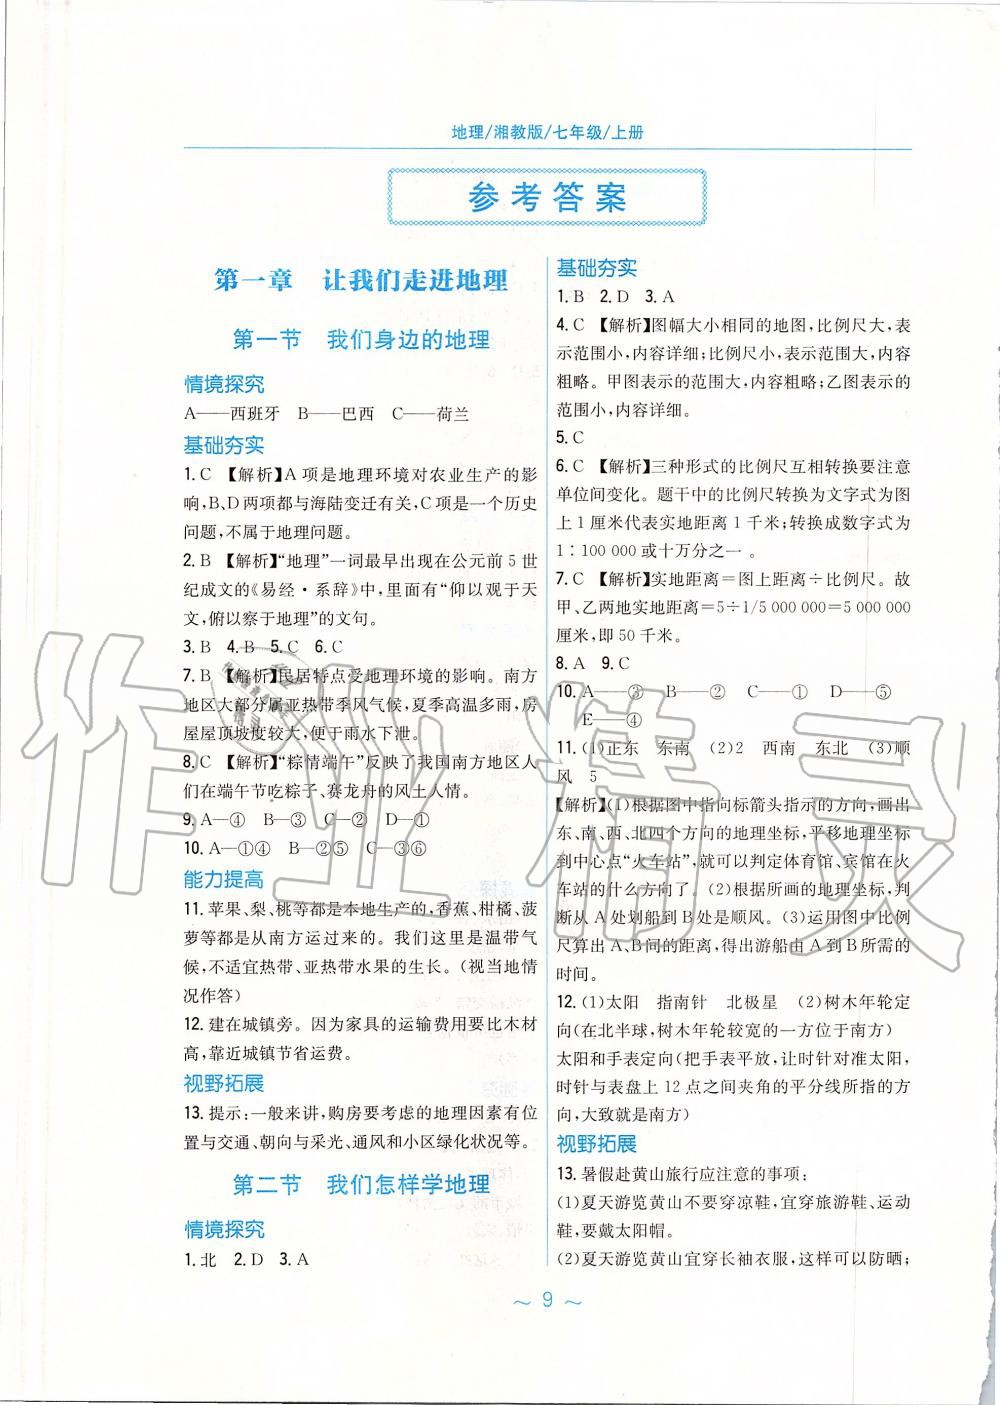 地理/湘教版/七年级/上册
参考答案
第一章 让我们走进地理
第一节 我们身边的地理
情境探究
A——西班牙 B——巴西 C——荷兰
基础夯实
1. C 【解析】A 项是地理环境对农业生产的影
响,B、D 两项都与海陆变迁有关,C 项是一个历史
问题,不属于地理问题。
2. B 【解析】“地理”一词最早出现在公元前 5 世
纪成文的《易经·系辞》中,里面有“仰以观于天
文,俯以察于地理”的文句。
3. B 4. B 5. C 6. C
7. B 【解析】民居特点受地理环境的影响。南方
地区大部分属亚热带季风气候,夏季高温多雨,房
屋屋顶坡度较大,便于雨水下泄。
8. C 【解析】“粽情端午”反映了我国南方地区人
们在端午节吃粽子、赛龙舟的风土人情。
9. A—④ B—③ C—② D—①
10. A—①④ B—②⑤ C—③⑥
能力提高
11. 苹果、梨、桃等都是本地生产的,香蕉、柑橘、菠
萝等都是从南方运过来的。我们这里是温带气
候,不适宜热带、亚热带水果的生长。(视当地情
况作答)
12. 建在城镇旁。因为家具的运输费用要比木材
高,靠近城镇节省运费。
视野拓展
13. 提示:一般来讲,购房要考虑的地理因素有位
置与交通、朝向与采光、通风和小区绿化状况等。
第二节 我们怎样学地理
情境探究
1. 北 2. D 3. A
基础夯实
1. B 2. D 3. A
4. C 【解析】图幅大小相同的地图,比例尺大,表
示范围小,内容详细;比例尺小,表示范围大,内容
粗略。甲图表示的范围大,内容粗略;乙图表示的
范围小,内容详细。
5. C
6. C 【解析】三种形式的比例尺互相转换要注意
单位间变化。题干中的比例尺转换为文字式为图
上 1 厘米代表实地距离 1 千米;转换成数字式为
1∶100 000 或十万分之一 。
7. C 【解析】实地距离=图上距离÷比例尺。故
甲、乙两地实地距离=5÷1/5 000 000=5 000 000
厘米,即 50 千米。
8. A 9. C
10. A——③ B——② C——① D——⑤
E——④
11. (1)正东 东南 (2)2 西南 东北 (3)顺
风 5
【解析】(1)根据图中指向标箭头指示的方向,画出
东、南、西、北四个方向的地理坐标,平移地理坐标
到中心点“火车站”,就可以判定体育馆、宾馆在火
车站的什么方向了。(2)根据所画的地理坐标,判
断从 A 处划船到 B 处是顺风。(3)运用图中比例
尺算出 A、B间的距离,得出游船由 A 到 B 所需的
时间。
12. (1)太阳 指南针 北极星 (2)树木年轮定
向(在北半球,树木年轮较宽的一方位于南方)
太阳和手表定向(把手表平放,让时针对准太阳,
时针与表盘上 12 点之间夹角的平分线所指的方
向,大致就是南方)
视野拓展
13. 暑假赴黄山旅行应注意的事项:
(1)夏天游览黄山不要穿凉鞋,宜穿旅游鞋、运动
鞋,要戴太阳帽。
(2)夏天游览黄山宜穿长袖衣服,这样可以防晒;
~ 9 ~
作业精灵